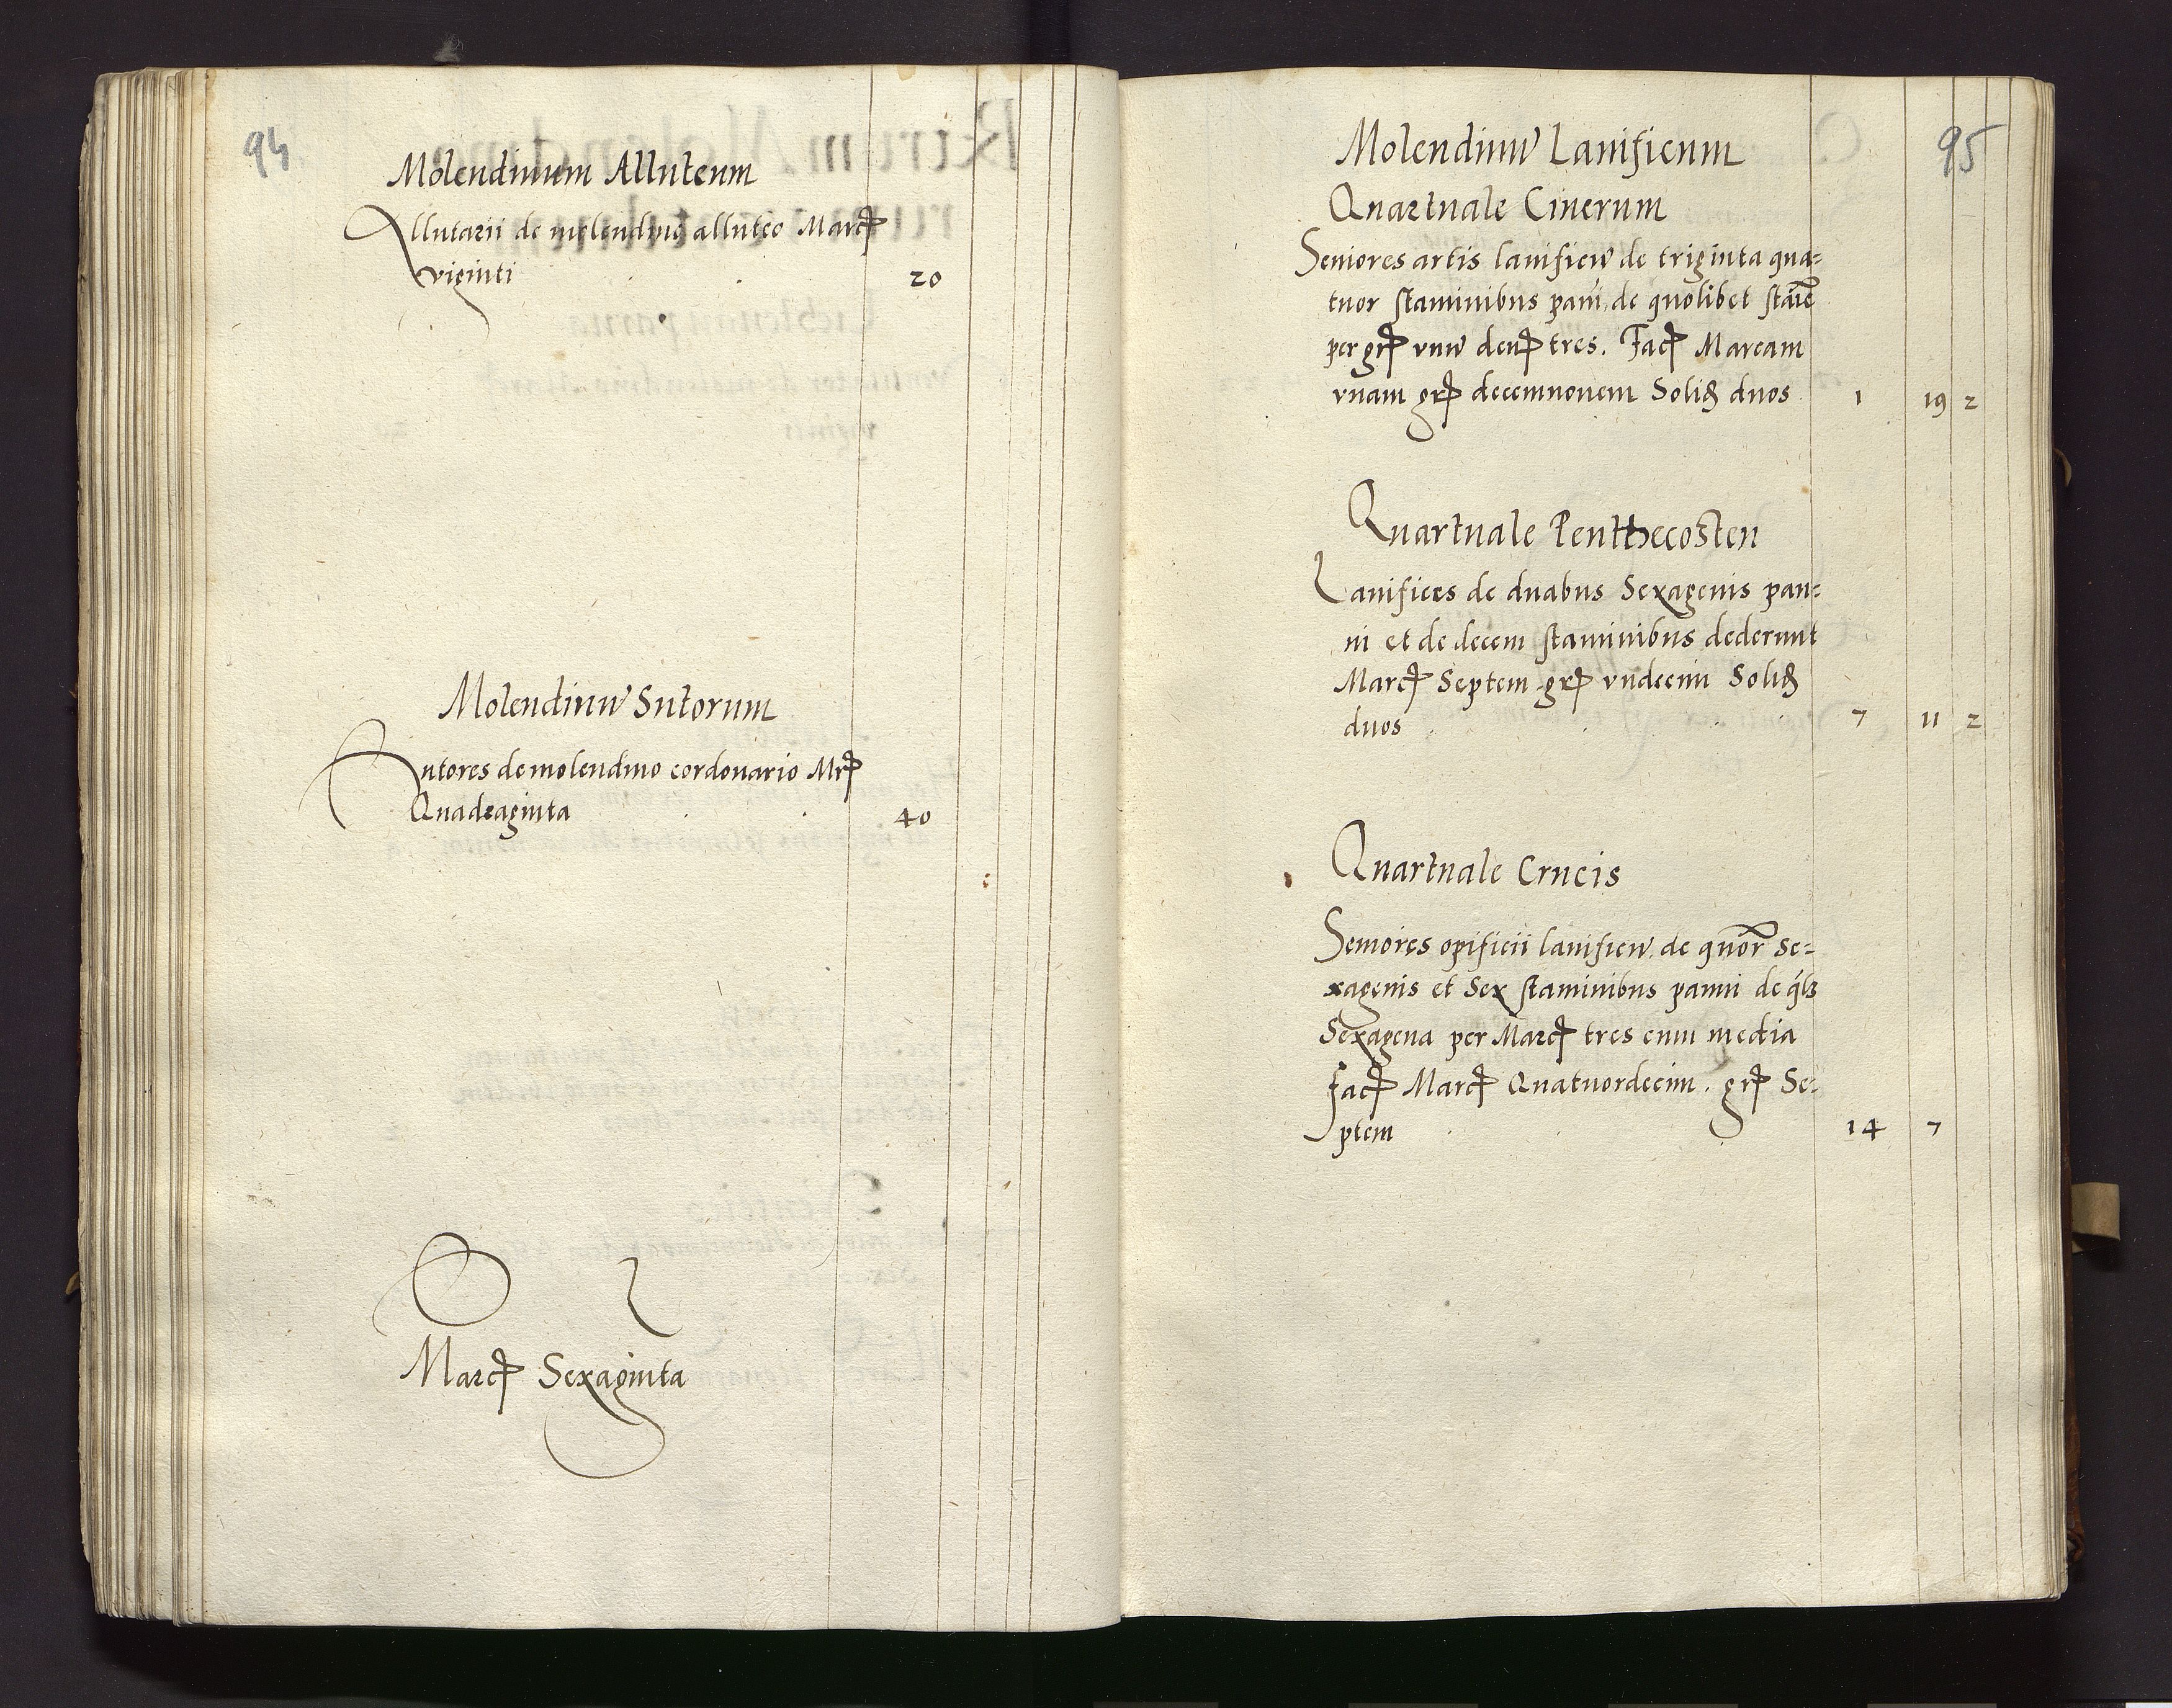 94
Molendinum Alluteum
Allutarii de molendino alluteo Marcȹ
viginti 20
Molendinū Sutorum
Sutores de molendino cordonario Mrȹ
Quadraginta 40
Marcȹ Sexaginta
95
Molendinū Lanificum
Quartuale Cinerum
Seniores artis lanificū de triginta qua=
tuor staminibus pañi de quolibet staīe
per grȹ vnū denȹ tres. Facȹ Marcam
vnam grȹ decemnouem Solið duos 1 19 2
Quartuale Penthecosten
Lanifices de duabus Sexagenis pan=
ni et de decem staminibus dederunt
Marcȹ Septem grȹ vndecim Solið
duos 7 11 2
Quartuale Crucis
Seniores opificii lanificū de quor̄ Se=
xagenis et Sex staminibus panni de qlꝫ
Sexagena per Marcȹ tres cum media
facȹ Marcȹ Quatuordecim. grȹ Se=
ptem 14 7